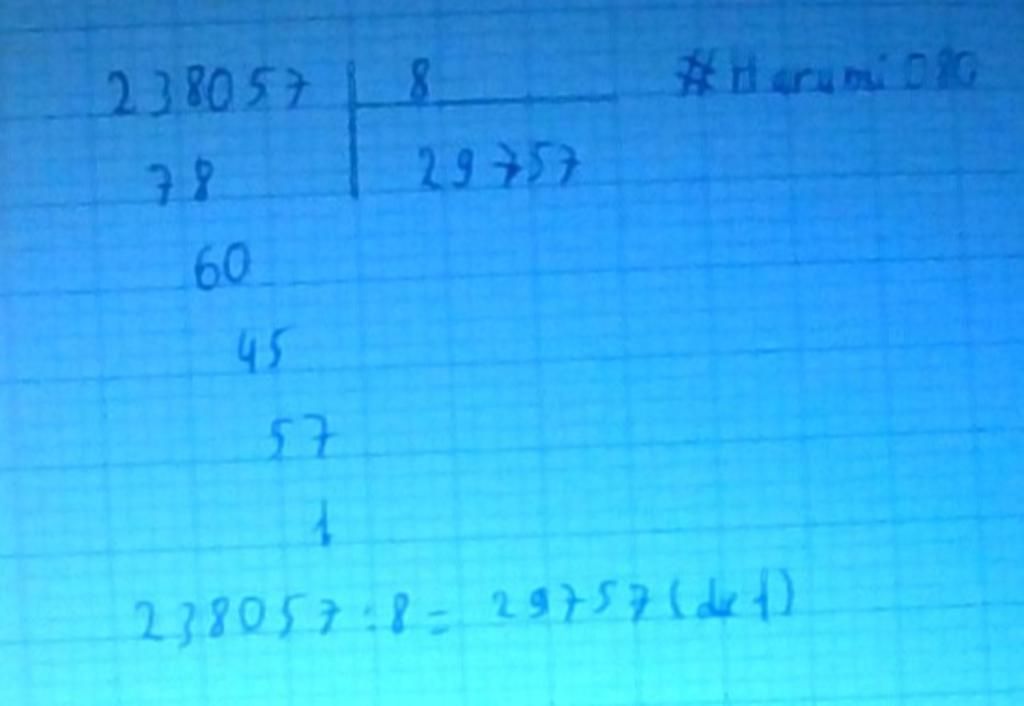 238057 8 #Harumi080
78 29757
60
45
57
1
238057:8= 29757 (dư 1)